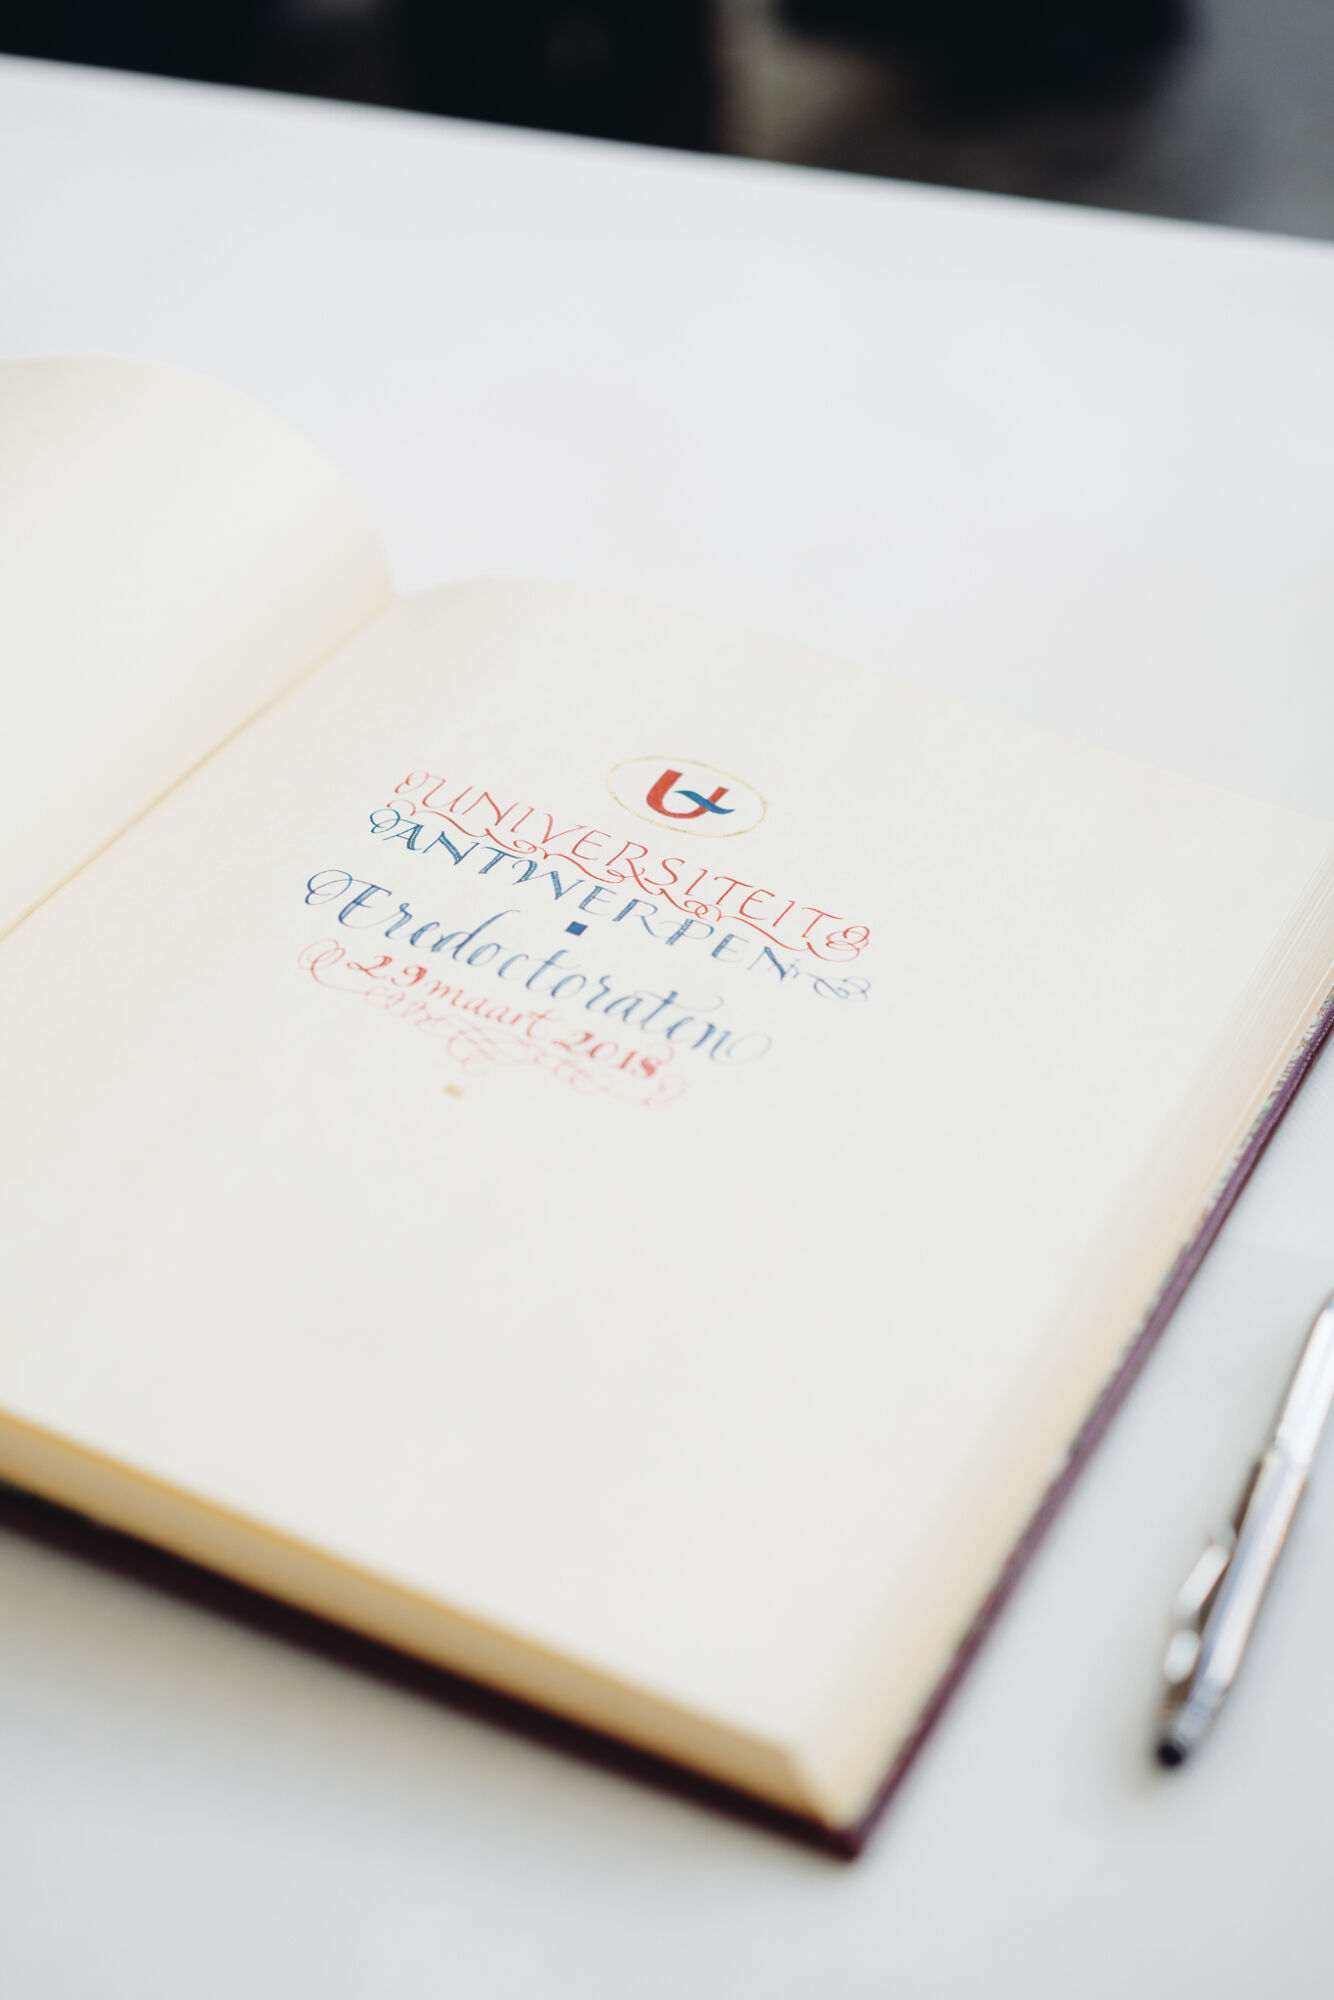 UNIVERSITEIT
ANTWERPEN
Eredoctoraten
29 maart 2018